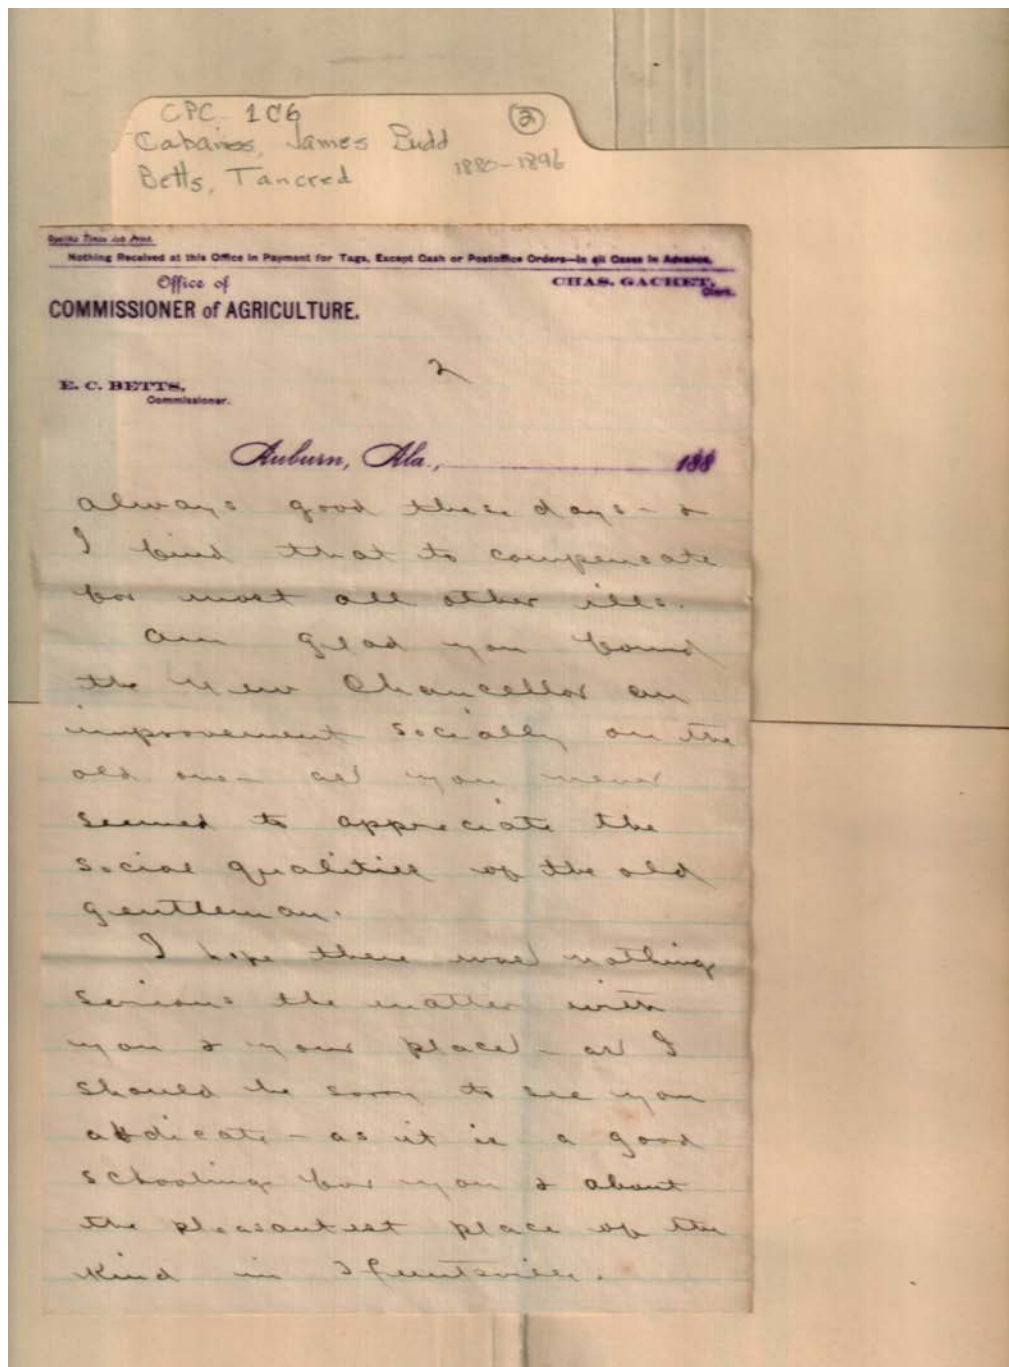 CPC 1C6
②
Cabaniss, James Budd
1880-1896
Betts, Tancred
Opelika Times Job Print.
Nothing Received at this Office in Payment for Tags, Except Cash or Postoffice Orders—in all Cases in Advance.
Office of
CHAS. GACHET,
Clerk.
COMMISSIONER of AGRICULTURE.
2
E. C. BETTS,
Commissioner.
Auburn, Ala., 188
always good these days - &
I find that to compensate
for most all other ills.
Am glad you found
the new Chancellor an
improvement socially on the
old one - as you never
seemed to appreciate the
social qualities of the old
gentleman.
I hope there was nothing
serious the matter with
you & your place - as I
should be sorry to see you
abdicate - as it is a good
schooling for you & about
the pleasantest place of the
kind in Huntsville.